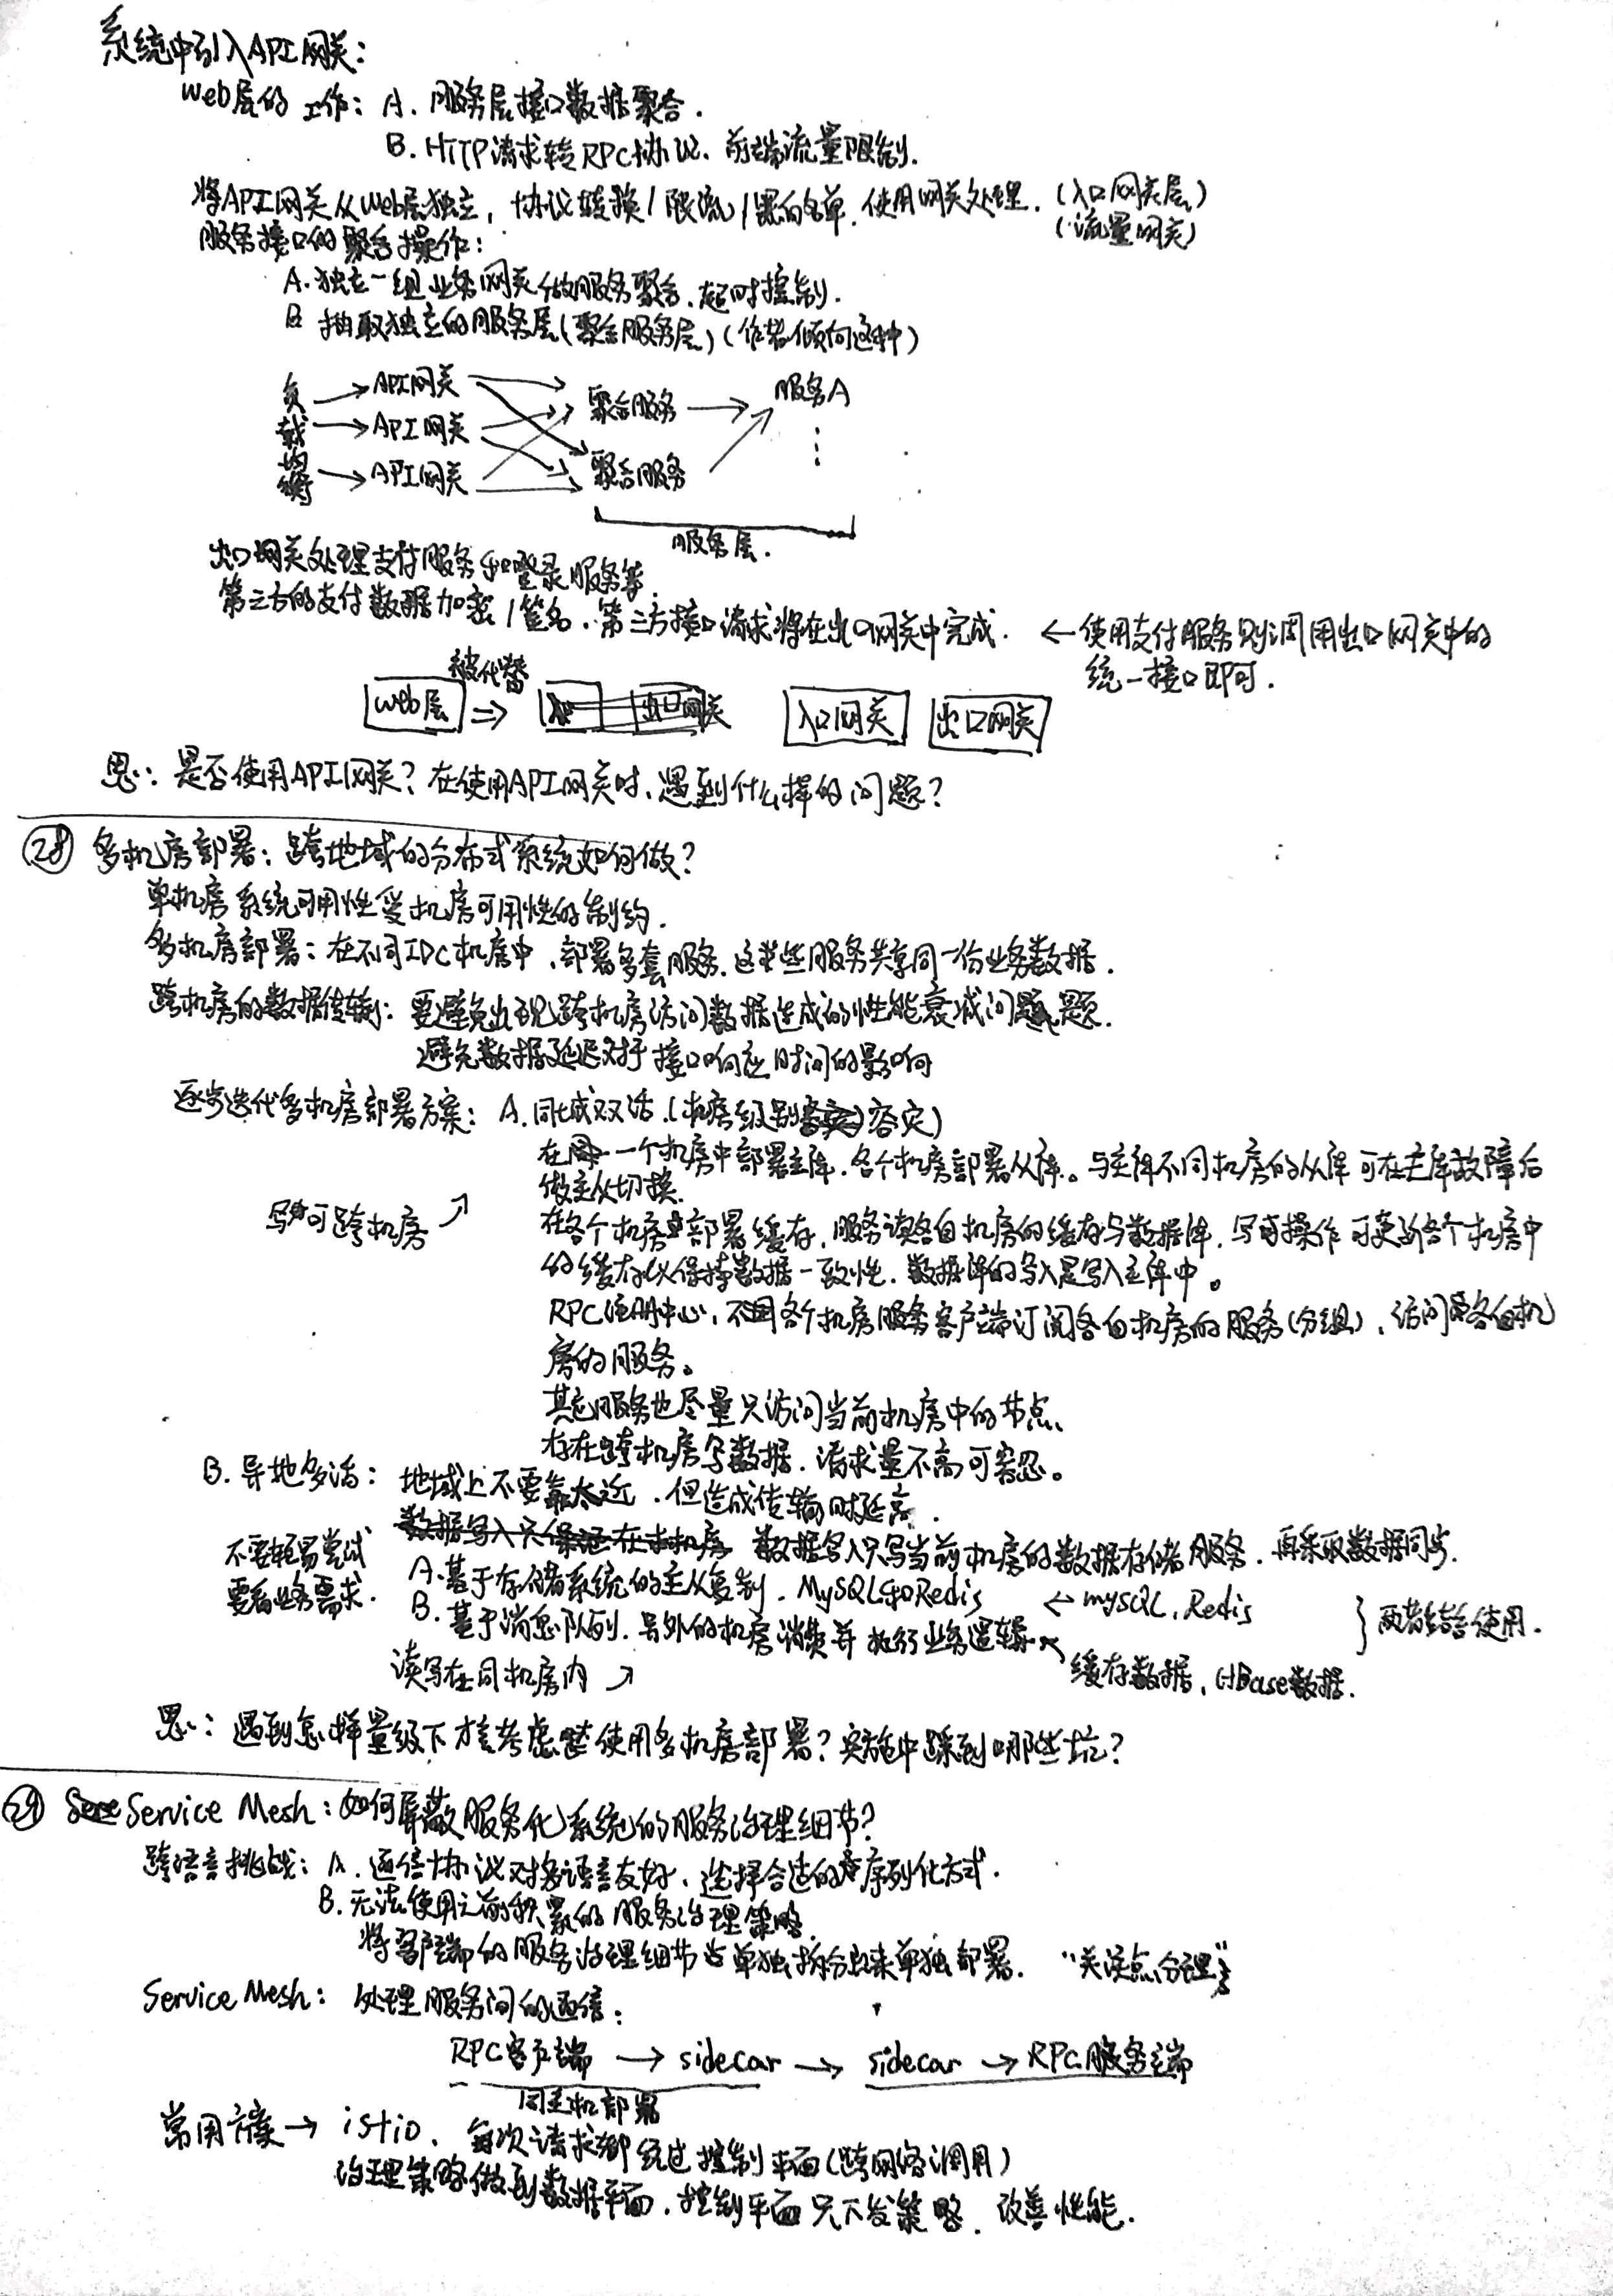 系统中引入API网关:
Web层的工作: A. 服务层接口数据聚合.
B. HTTP请求转RPC协议、前端流量限制.
将API网关从Web层独立, 协议转换/限流/黑白名单.使用网关处理. (入口网关层)
(流量网关)
服务接口的聚合操作:
A. 独立一组业务网关做服务聚合.超时控制.
B 抽取独立的服务层(聚合服务层)(作者倾向这种)
负载均衡 → API网关
→ API网关
→ API网关
聚合服务 → 服务A
聚合服务
服务层.
出口网关处理支付服务和登录服务等.
第三方的支付数据加密/签名.第三方接口请求将在出口网关中完成. ← 使用支付服务则调用出口网关中的
统一接口即可.
被代替
Web层 ⇒ 出口网关 入口网关 出口网关
思: 是否使用API网关? 在使用API网关时、遇到什么样的问题?
28 多机房部署: 跨地域的分布式系统如何做?
单机房系统可用性受机房可用性的制约.
多机房部署: 在不同IDC机房中、部署多套服务.这些服务共享同一份业务数据.
跨机房的数据传输: 要避免出现跨机房访问数据造成的性能衰减问题.
避免数据延迟对于接口响应时间的影响
逐步迭代多机房部署方案: A. 同城双活.(机房级别容灾)
在一个机房中部署主库.各个机房部署从库。与主库不同机房的从库可在主库故障后
做主从切换.
写可跨机房 ↗
在各个机房部署缓存.服务读各自机房的缓存与数据库.写操作可更新各个机房中
的缓存以保持数据一致性.数据库的写入是写入主库中。
RPC注册中心、各个机房服务客户端订阅各自机房的服务(分组)、访问各自机
房的服务。
其它服务也尽量只访问当前机房中的节点、
存在跨机房写数据.请求量不高可容忍。
B. 异地多活: 地域上不要靠太近.但造成传输时延高.
数据写入只写当前机房的数据存储服务.再采取数据同步.
不要轻易尝试
要看业务需求.
A. 基于存储系统的主从复制. MySQL和Redis ← mySQL、Redis
B. 基于消息队列.另外的机房消费并执行业务逻辑 ↖ } 两者结合使用.
缓存数据, HBase数据.
读写在同机房内 ↗
思: 遇到怎样量级下才考虑使用多机房部署? 实施中踩到哪些坑?
29 Service Mesh: 如何屏蔽服务化系统的服务治理细节?
跨语言挑战: A. 通信协议对多语言友好、选择合适的序列化方式.
B. 无法使用之前积累的服务治理策略.
将客户端的服务治理细节单独拆分出来单独部署. "关注点分离"
Service Mesh: 处理服务间的通信:
RPC客户端 → sidecar → sidecar → RPC服务端
同主机部署
常用方案 → istio、每次请求都经过控制平面(跨网络调用)
治理策略做到数据平面.控制平面只下发策略.改善性能.